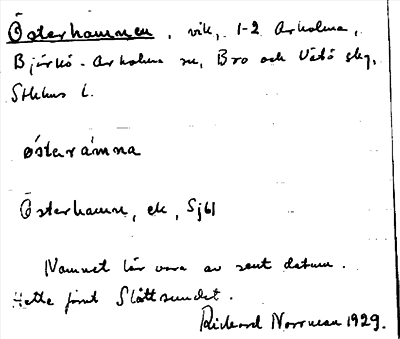 Österhamnen, vik, 1-2 Arholma,
Björkö-Arholma sn, Bro och Vätö skg,
Sthlms l.
østarámna
Österhamn, ek, Sjöl
Namnet lär vara av sent datum.
Hette förut Slåttsundet.
Rickard Norrman 1929.